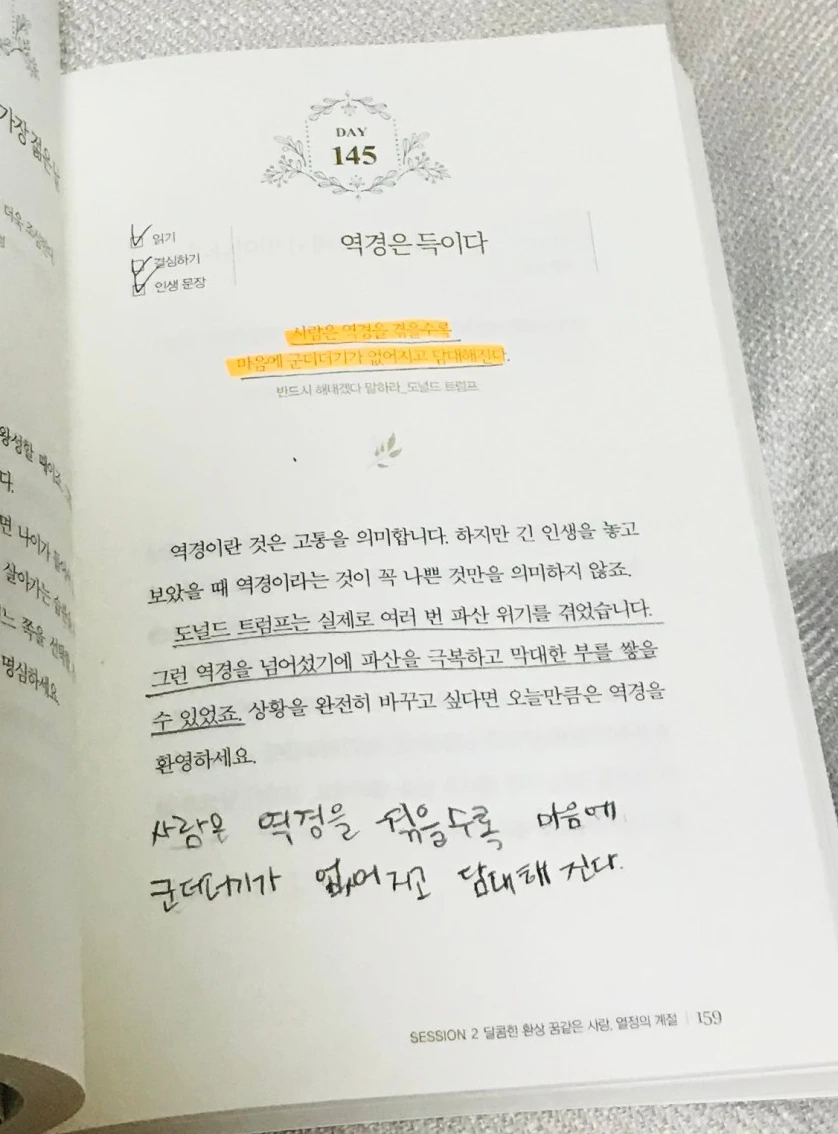 가장 젊은 날
더욱 조심한다
DAY
145
읽기
결심하기
인생 문장
역경은 득이다
사람은 역경을 겪을수록
마음에 군더더기가 없어지고 담대해진다.
반드시 해내겠다 말하라_도널드 트럼프
왕성할 때이죠.
다.
면 나이가
살아가는 습관을
느 쪽을 선택할
명심하세요.
역경이란 것은 고통을 의미합니다. 하지만 긴 인생을 놓고
보았을 때 역경이라는 것이 꼭 나쁜 것만을 의미하지 않죠.
도널드 트럼프는 실제로 여러 번 파산 위기를 겪었습니다.
그런 역경을 넘어섰기에 파산을 극복하고 막대한 부를 쌓을
수 있었죠. 상황을 완전히 바꾸고 싶다면 오늘만큼은 역경을
환영하세요.
사람은 역경을 겪을수록 마음에
군더더기가 없어지고 담대해 진다.
SESSION 2 달콤한 환상 꿈같은 사랑, 열정의 계절 | 159